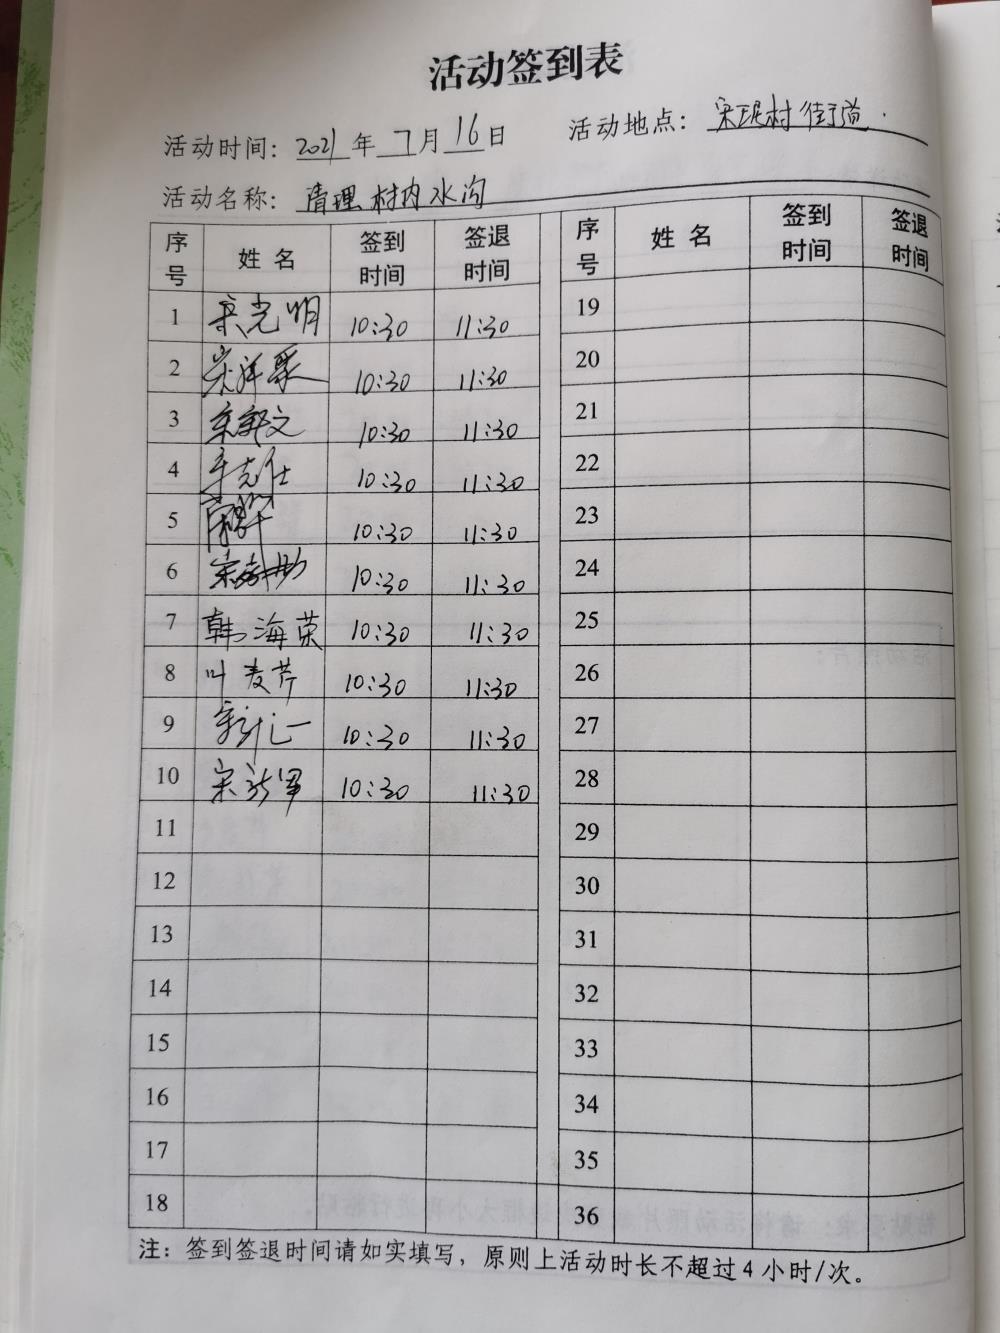 活动签到表
活动时间：2021年7月16日 活动地点：宋坭村街道
活动名称：清理村内水沟
序号 姓名 签到时间 签退时间 序号 姓名 签到时间 签退时间
1 宋光明 10:30 11:30 19
2 10:30 11:30 20
3 10:30 11:30 21
4 10:30 11:30 22
5 10:30 11:30 23
6 10:30 11:30 24
7 韩海荣 10:30 11:30 25
8 叶麦芹 10:30 11:30 26
9 10:30 11:30 27
10 宋新军 10:30 11:30 28
11 29
12 30
13 31
14 32
15 33
16 34
17 35
18 36
注：签到签退时间请如实填写，原则上活动时长不超过4小时/次。